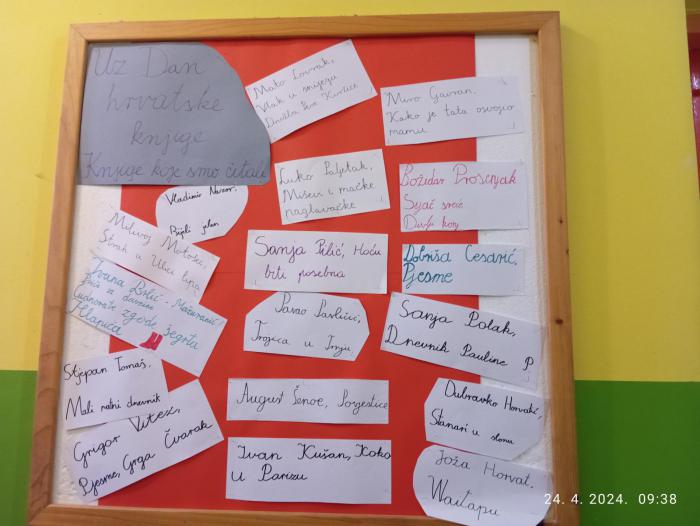 Uz Dan
hrvatske
knjige
Knjige koje smo čitali
Mato Lovrak,
Vlak u snijegu
Družba Pere Kvržice
Miro Gavran,
Kako je tata osvojio
mamu
Luko Paljetak,
Miševi i mačke
naglavačke
Božidar Prosenjak
Sijač sreće
Divlji konj
Vladimir Nazor,
Bijeli jelen
Milivoj Matošec,
Strah u Ulici lipa
Sanja Pilić, Hoću
biti posebna
Dobriša Cesarić,
Pjesme
Ivana Brlić-Mažuranić
Priče iz davnine
Čudnovate zgode šegrta
Hlapića
Pavao Pavličić,
Trojica u Trnju
Sanja Polak,
Dnevnik Pauline P
Stjepan Tomaš,
Mali ratni dnevnik
August Šenoa, Povjestice
Dubravko Horvatić,
Stanari u slonu
Grigor Vitez,
Pjesme, Grga Čvarak
Ivan Kušan, Koko
u Parizu
Joža Horvat,
Waitapu
24. 4. 2024. 09:38